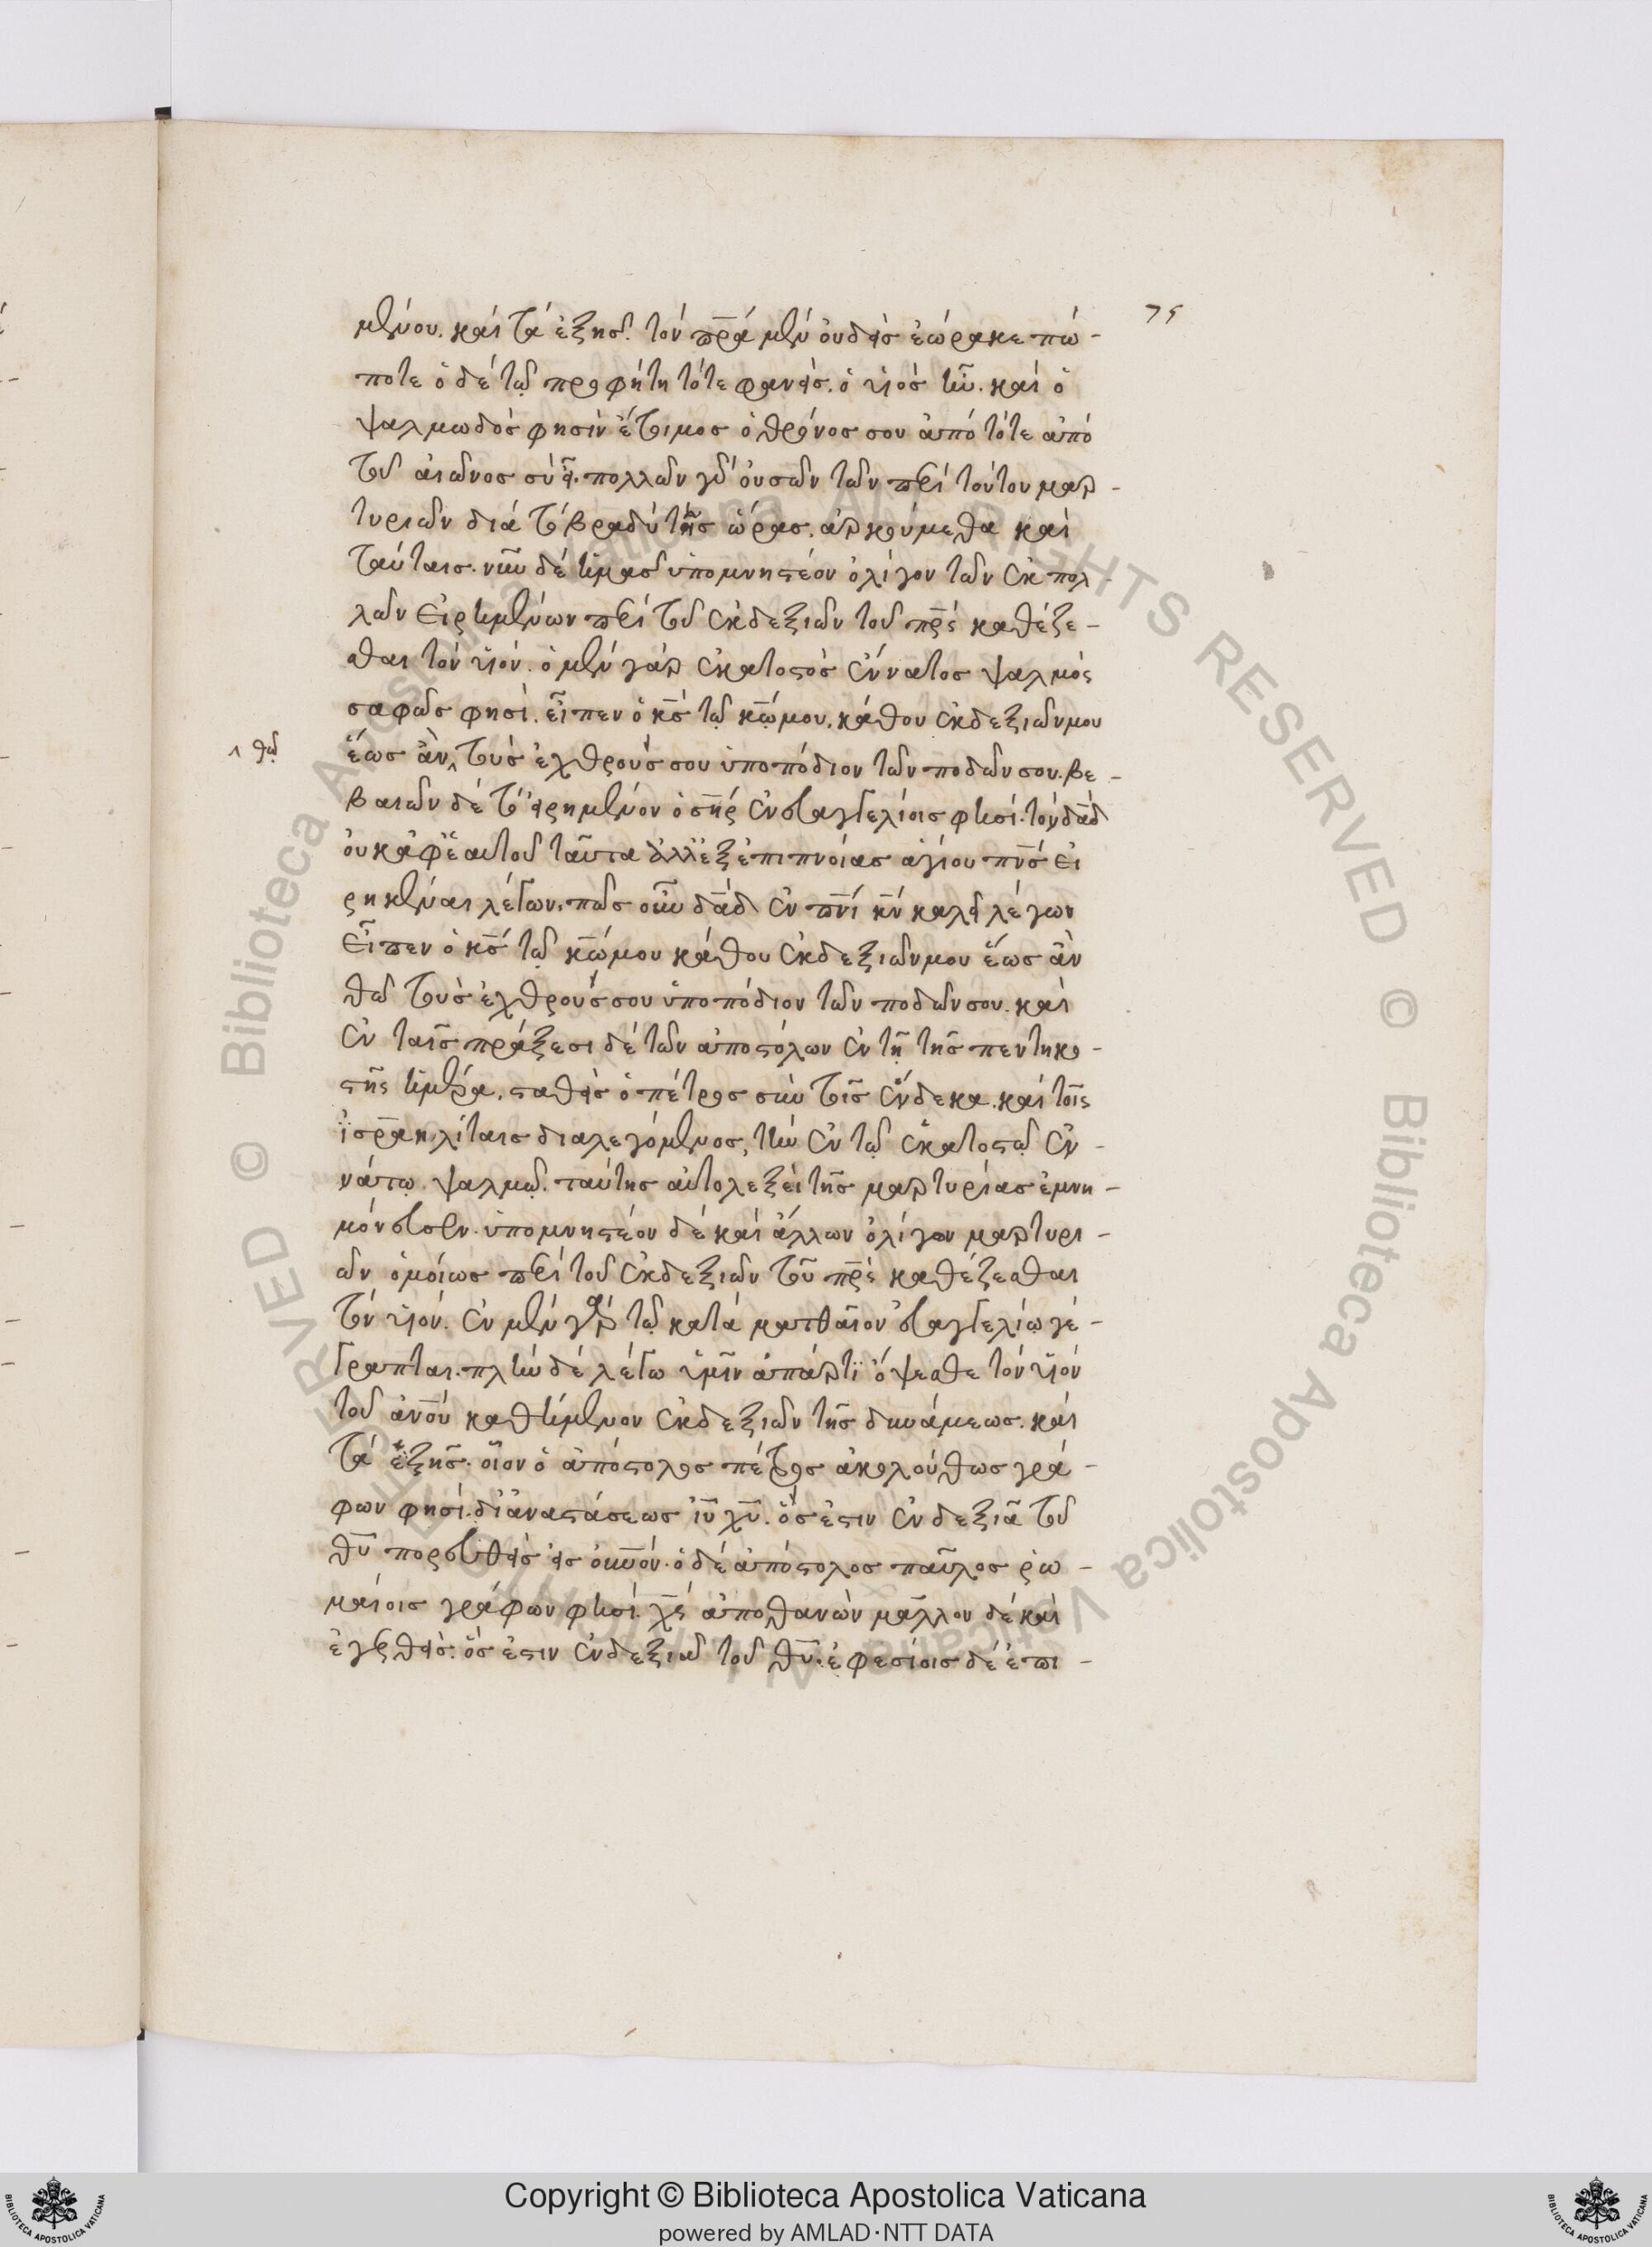 75
μένου. καὶ τὰ ἑξῆς. τὸν π̅ρ̅α μὲν οὐδεὶς ἑώρακε πώ-
ποτε ὁ δὲ τῷ προφήτῃ τότε φανεὶς. ὁ υἱὸς ἦν. καὶ ὁ
ψαλμωδὸς φησὶν ἕτοιμος ὁ θρόνος σου ἀπὸ τότε ἀπὸ
τοῦ αἰῶνος σὺ εἶ. πολλῶν γὰρ οὐσῶν τῶν περὶ τούτου μαρ-
τυριῶν διὰ τὸ βραδὺ τῆς ὥρας. ἀρκούμεθα καὶ
ταύταις. νῦν δὲ ἡμᾶς ὑπομνηστέον ὀλίγον τῶν ἐκ πολ-
λῶν εἰρημένων περὶ τοῦ ἐκ δεξιῶν τοῦ π̅ρ̅ς καθέζε-
σθαι τὸν υἱόν. ὁ μὲν γὰρ ἑκατοστὸς ἔννατος ψαλμὸς
σαφῶς φησὶ. εἶπεν ὁ κ̅ς̅ τῷ κ̅ω̅ μου. κάθου ἐκ δεξιῶν μου
^ θῶ
ἕως ἂν^ τοὺς ἐχθρούς σου ὑποπόδιον τῶν ποδῶν σου. βε-
βαιῶν δὲ τὸ εἰρημένον ὁ σ̅η̅ρ̅ ἐν εὐαγγελίοις φησί. τὸν δ̅α̅δ̅
οὐκ ἀφ' ἑαυτοῦ ταῦτα ἀλλ' ἐξ ἐπιπνοίας ἁγίου π̅ν̅ς εἰ
ρηκέναι λέγων. πῶς οὖν δ̅α̅δ̅ ἐν π̅ν̅ι κ̅ν̅ καλεῖ λέγων
εἶπεν ὁ κ̅ς̅ τῷ κ̅ω̅ μου κάθου ἐκ δεξιῶν μου ἕως ἂν
θῶ τοὺς ἐχθρούς σου ὑποπόδιον τῶν ποδῶν σου. καὶ
ἐν ταῖς πράξεσι δὲ τῶν ἀποστόλων ἐν τῇ τῆς πεντηκο-
στῆς ἡμέρα. σταθεὶς ὁ πέτρος σὺν τοῖς ἕνδεκα. καὶ τοῖς
ἰσραηλίταις διαλεγόμενος, ἦν ἐν τῷ ἑκατοστῷ ἐν-
νάτῳ. ψαλμῷ. ταύτης αὐτολεξεὶ τῆς μαρτυρίας ἐμνη-
μόνευσεν. ὑπομνηστέον δὲ καὶ ἄλλων ὀλίγων μαρτυρι-
ῶν ὁμοίως περὶ τοῦ ἐκ δεξιῶν τοῦ π̅ρ̅ς καθέζεσθαι
τὸν υἱόν. ἐν μὲν γὰρ τῷ κατὰ ματθαῖον εὐαγγελίῳ γέ-
γραπται. πλὴν δὲ λέγω ὑμῖν ἀπάρτι ὄψεσθε τὸν υἱὸν
τοῦ ἀν̅ο̅υ̅ καθήμενον ἐκ δεξιῶν τῆς δυνάμεως. καὶ
τὰ ἑξῆς. οἷον ὁ ἀπόστολος πέτρος ἀκολούθως γρά-
φων φησί. δι' ἀναστάσεως ἰ̅υ̅ χ̅υ̅. ὅς ἐστιν ἐν δεξιᾶ τοῦ
θ̅υ̅ πορευθεὶς εἰς οὐ̅νόν. ὁ δὲ ἀπόστολος παῦλος ῥω-
μαίοις γράφων φησί. χ̅ς̅ ἀποθανὼν μᾶλλον δὲ καὶ
ἐγερθεὶς. ὅς ἐστιν ἐν δεξιᾶ τοῦ θ̅υ̅. ἐφεσίοις δὲ ἐπι-
Copyright © Biblioteca Apostolica Vaticana
powered by AMLAD·NTT DATA